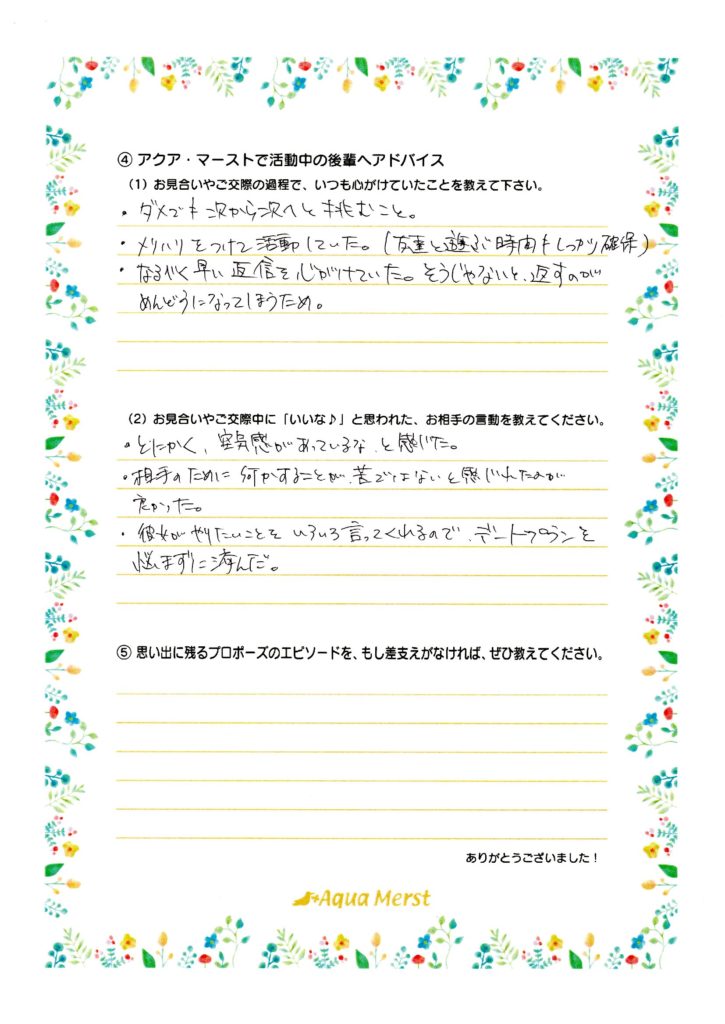 ④ アクア・マーストで活動中の後輩へアドバイス
（1）お見合いやご交際の過程で、いつも心がけていたことを教えて下さい。
・ダメでも次から次へと挑むこと。
・メリハリをつけて活動していた。(友達と遊ぶ時間もしっかり確保)
・なるべく早い返信を心がけていた。そうじゃないと、返すのが
めんどうになってしまうため。
（2）お見合いやご交際中に「いいな♪」と思われた、お相手の言動を教えてください。
・とにかく、空気感があっているな、と感じた。
・相手のために何かすることが、苦ではないと感じれたのが
良かった。
・彼女がやりたいことをいろいろ言ってくれるので、デートプランを
悩まずに済んだ。
⑤ 思い出に残るプロポーズのエピソードを、もし差支えがなければ、ぜひ教えてください。
ありがとうございました！
Aqua Merst